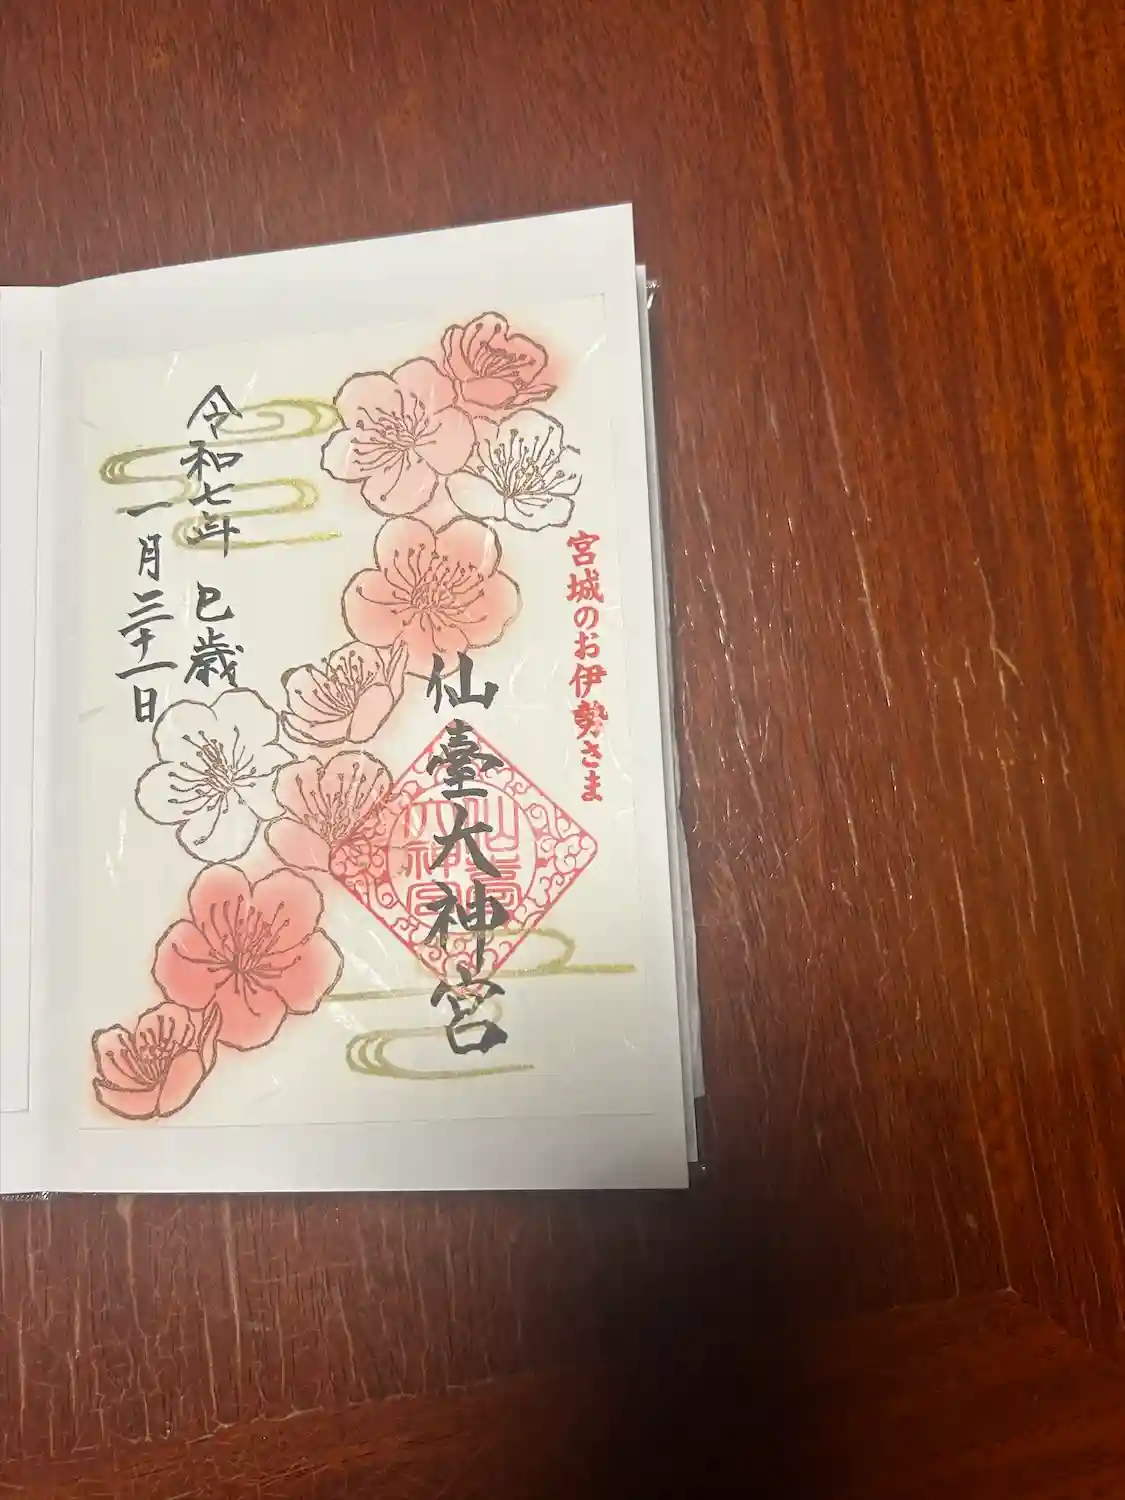 宮城のお伊勢さま
仙臺大神宮
仙臺
大神宮
令和七年 巳歳
一月二十一日